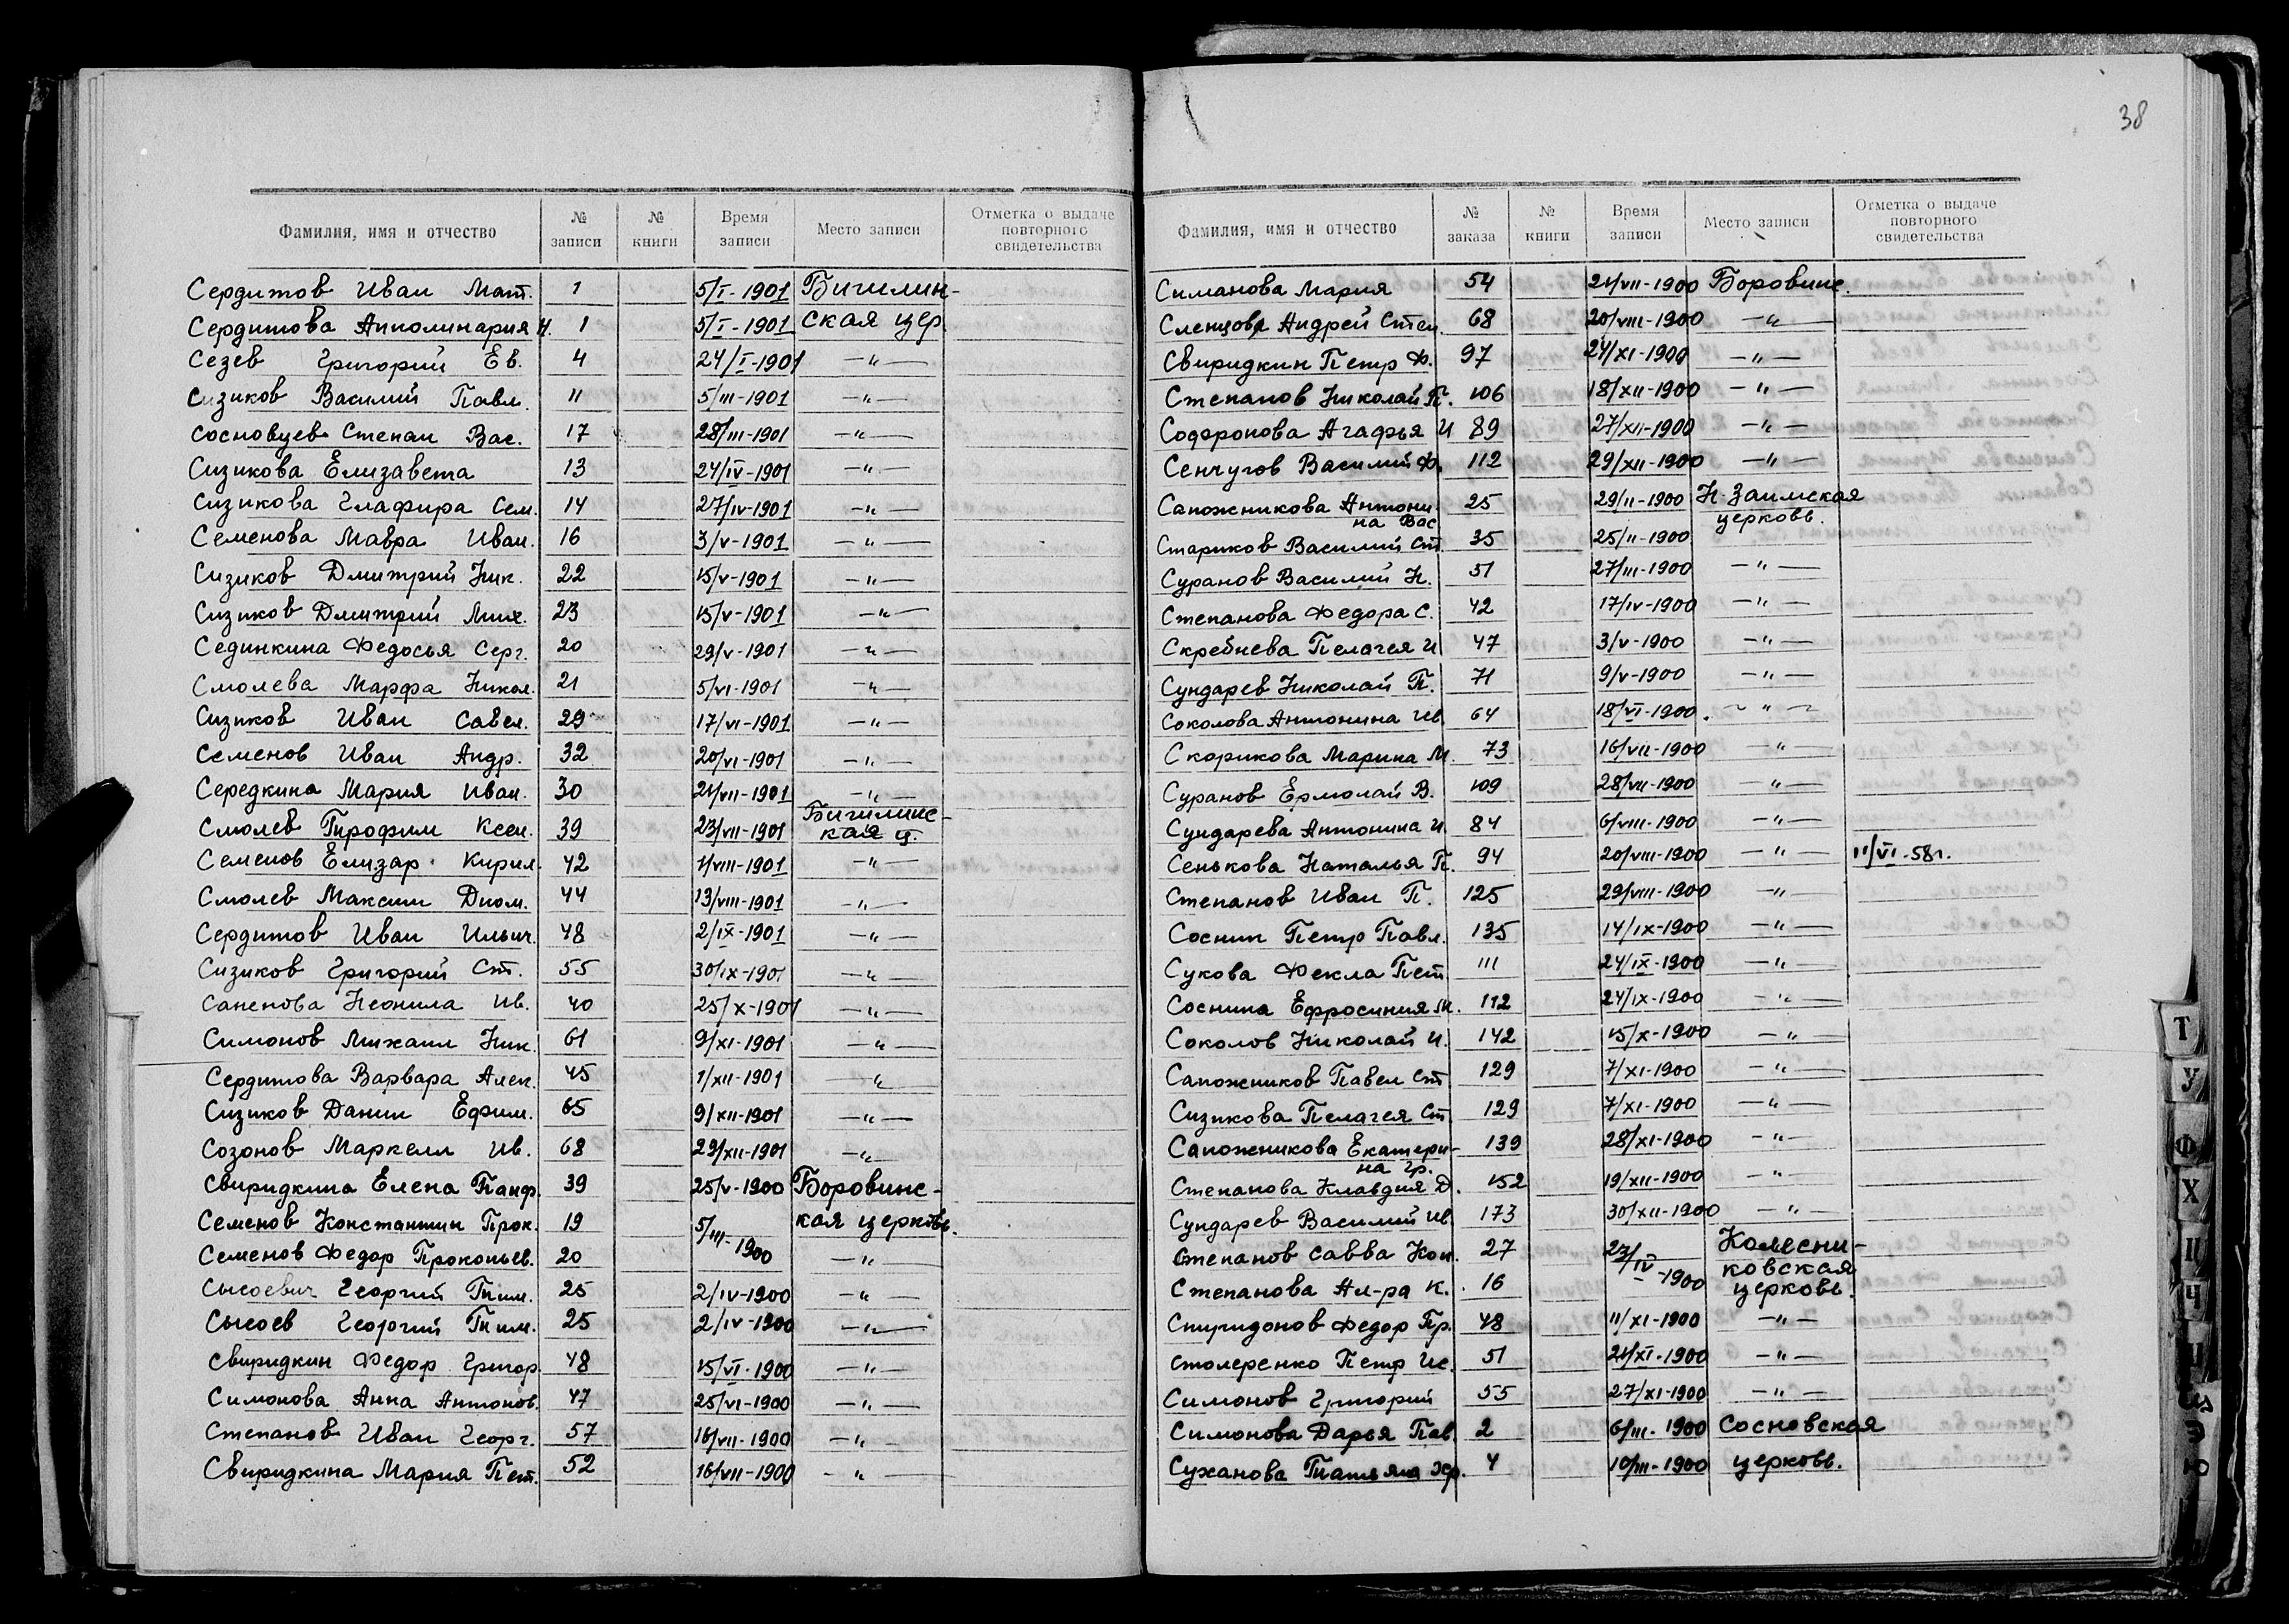 38
Фамилия, имя и отчество № записи № книги Время записи Место записи Отметка о выдаче повторного свидетельства
Сердитов Иван Мат. 1 5/I-1901 Бигилин-
Сердитова Апполинария И. 1 5/I-1901 ская цер.
Сезев Григорий Ев. 4 24/I-1901 —"—
Сизиков Василий Павл. 11 5/III-1901 —"—
Сосновцев Степан Вас. 17 28/III-1901 —"—
Сизикова Елизавета 13 24/IV-1901 —"—
Сизикова Глафира Сем. 14 27/IV-1901 —"—
Семенова Мавра Иван. 16 3/V-1901 —"—
Сизиков Дмитрий Ник. 22 15/V-1901 —"—
Сизиков Дмитрий Мих. 23 15/V-1901 —"—
Сединкина Федосья Серг. 20 29/V-1901 —"—
Смолева Марфа Никол. 21 5/VI-1901 —"—
Сизиков Иван Савел. 29 17/VI-1901 —"—
Семенов Иван Андр. 32 20/VI-1901 —"—
Середкина Мария Иван. 30 21/VII-1901 —"—
Смолев Трофим Ксен. 39 23/VII-1901 Бигилинс-кая ц.
Семенов Елизар Кирил. 42 1/VIII-1901 —"—
Смолев Максим Диом. 44 13/VIII-1901 —"—
Сердитов Иван Ильич. 48 2/IX-1901 —"—
Сизиков Григорий Ст. 55 30/IX-1901 —"—
Саненова Неонила Ив. 40 25/X-1901 —"—
Симонов Михаил Ник. 61 9/XI-1901 —"—
Сердитова Варвара Алек. 45 1/XII-1901 —"—
Сизиков Данил Ефим. 65 9/XII-1901 —"—
Созонов Маркелл Ив. 68 29/XII-1901 —"—
Свиридкина Елена Панф. 39 25/V-1900 Боровинс-
Семенов Константин Прок. 19 5/III-1900 кая церковь.
Семенов Федор Прокопьев. 20 —"—
Сысоевич Георгий Тим. 25 2/IV-1900 —"—
Сысоев Георгий Тим. 25 2/IV-1900 —"—
Свиридкин Федор Григор. 48 15/VI-1900 —"—
Симонова Анна Антонов. 47 25/VI-1900 —"—
Степанов Иван Георг. 57 16/VII-1900 —"—
Свиридкина Мария Пет. 52 16/VII-1900 —"—
Фамилия, имя и отчество № заказа № книги Время записи Место записи Отметка о выдаче повторного свидетельства
Симанова Мария 54 21/VII-1900 Боровинс.
Сленцова Андрей Степ. 68 20/VIII-1900 —"—
Свиридкин Петр Ф. 97 21/XI-1900 —"—
Степанов Николай П. 106 18/XII-1900 —"—
Содоронова Агафья И 89 27/XII-1900 —"—
Сенчугов Василий Ф. 112 29/XII-1900 —"—
Сапожникова Антони 25 29/II-1900 Н-Заимская
на Вас церковь.
Стариков Василий Ст. 35 25/II-1900
Суранов Василий Н. 51 27/III-1900 —"—
Степанова Федора С. 42 17/IV-1900 —"—
Скребнева Пелагея И 47 3/V-1900 —"—
Сундарев Николай П. 71 9/V-1900 —"—
Соколова Антонина Ив. 64 18/VI-1900. —"—
Скорикова Марина М. 73 16/VII-1900 —"—
Суранов Ермолай В. 109 28/VII-1900 —"—
Сундарева Антонина И. 84 6/VIII-1900 —"—
Сенькова Наталья П. 94 20/VIII-1900 —"— 11/VI-58г.
Степанов Иван П. 125 29/VIII-1900 —"
Соснин Петр Павл. 135 14/IX-1900 —"—
Сукова Фекла Пет. 111 24/IX-1900 —"—
Соснина Ефросиния М. 112 24/IX-1900 —"—
Соколов Николай И. 142 15/X-1900 —"
Сапожников Павел Ст 129 7/XI-1900 —"—
Сизикова Пелагея Ст 129 7/XI-1900 —"—
Сапожникова Екатери- 139 28/XI-1900 —"—
на Гр.
Степанова Клавдия Д. 152 19/XII-1900 —"
Сундарев Василий Ив. 173 30/XII-1900 —"—
Степанов Савва Кон. 27 27/IV-1900 Колесни-
ковская
Степанова Ал-ра К. 16 церковь.
Спиридонов Федор Пр. 48 11/XI-1900 —"—
Столеренко Петр Ис. 51 21/XI-1900 —"—
Симонов Григорий 55 27/XI-1900 —"—
Симонова Дарья Пав. 2 6/III-1900 Сосновская
Суханова Татьяна Хар. 4 10/III-1900 церковь.
Т
У
Ф
Х
Ц
Ч
Э
Ю